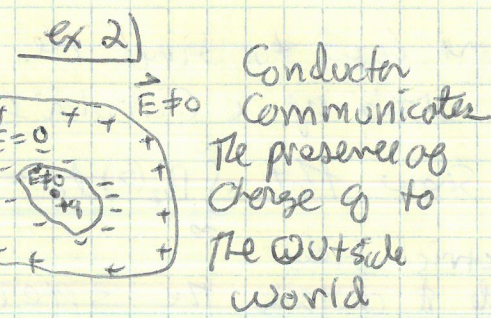 ex 2)
E ≠ 0
E = 0
E ≠ 0
+q
Conductor
Communicates
The presence of
charge q to
The outside
world